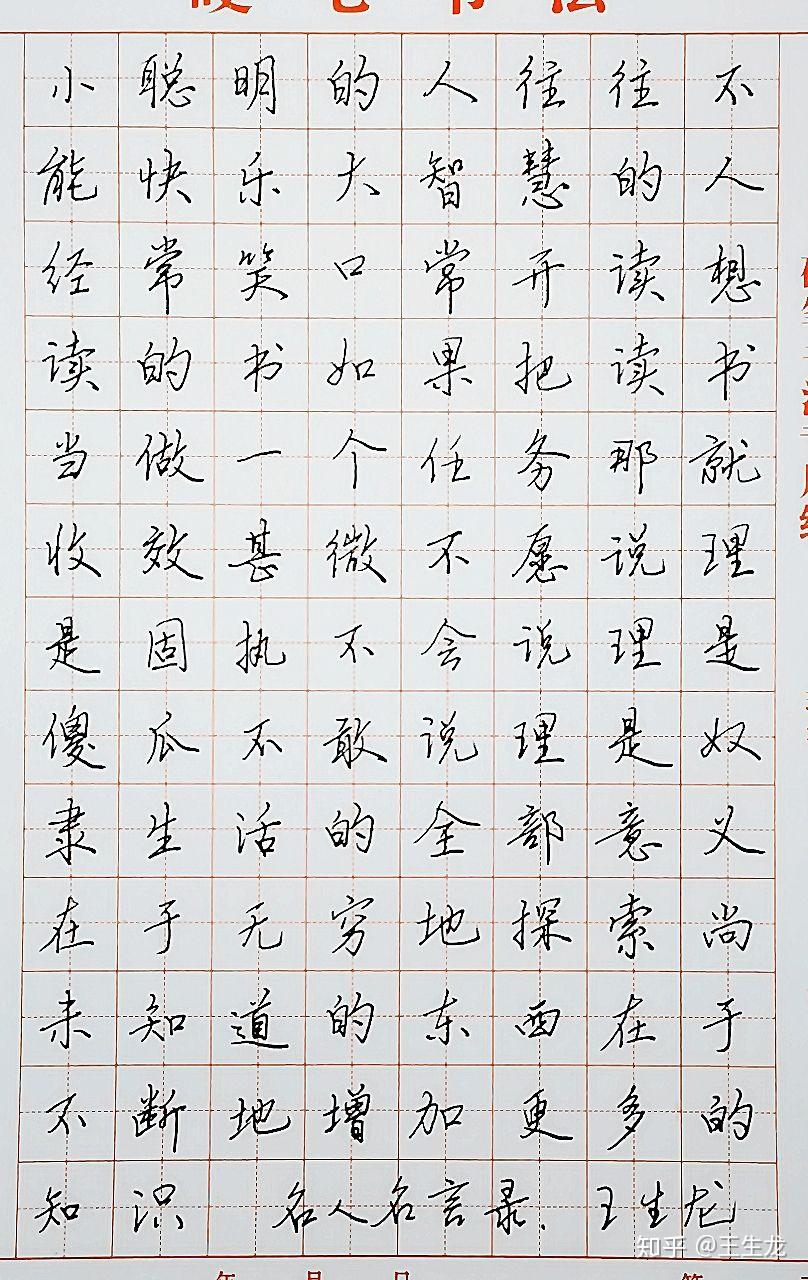 小聪明的人往往不
能快乐大智慧的人
经常笑口常开读想
读的书如果把读书
当做一个任务那就
收效甚微不愿说理
是固执不会说理是
傻瓜不敢说理是奴
隶生活的全部意义
在于无穷地探索尚
未知道的东西在于
不断地增加更多的
知识 名人名言录.王生龙
知乎 @王生龙